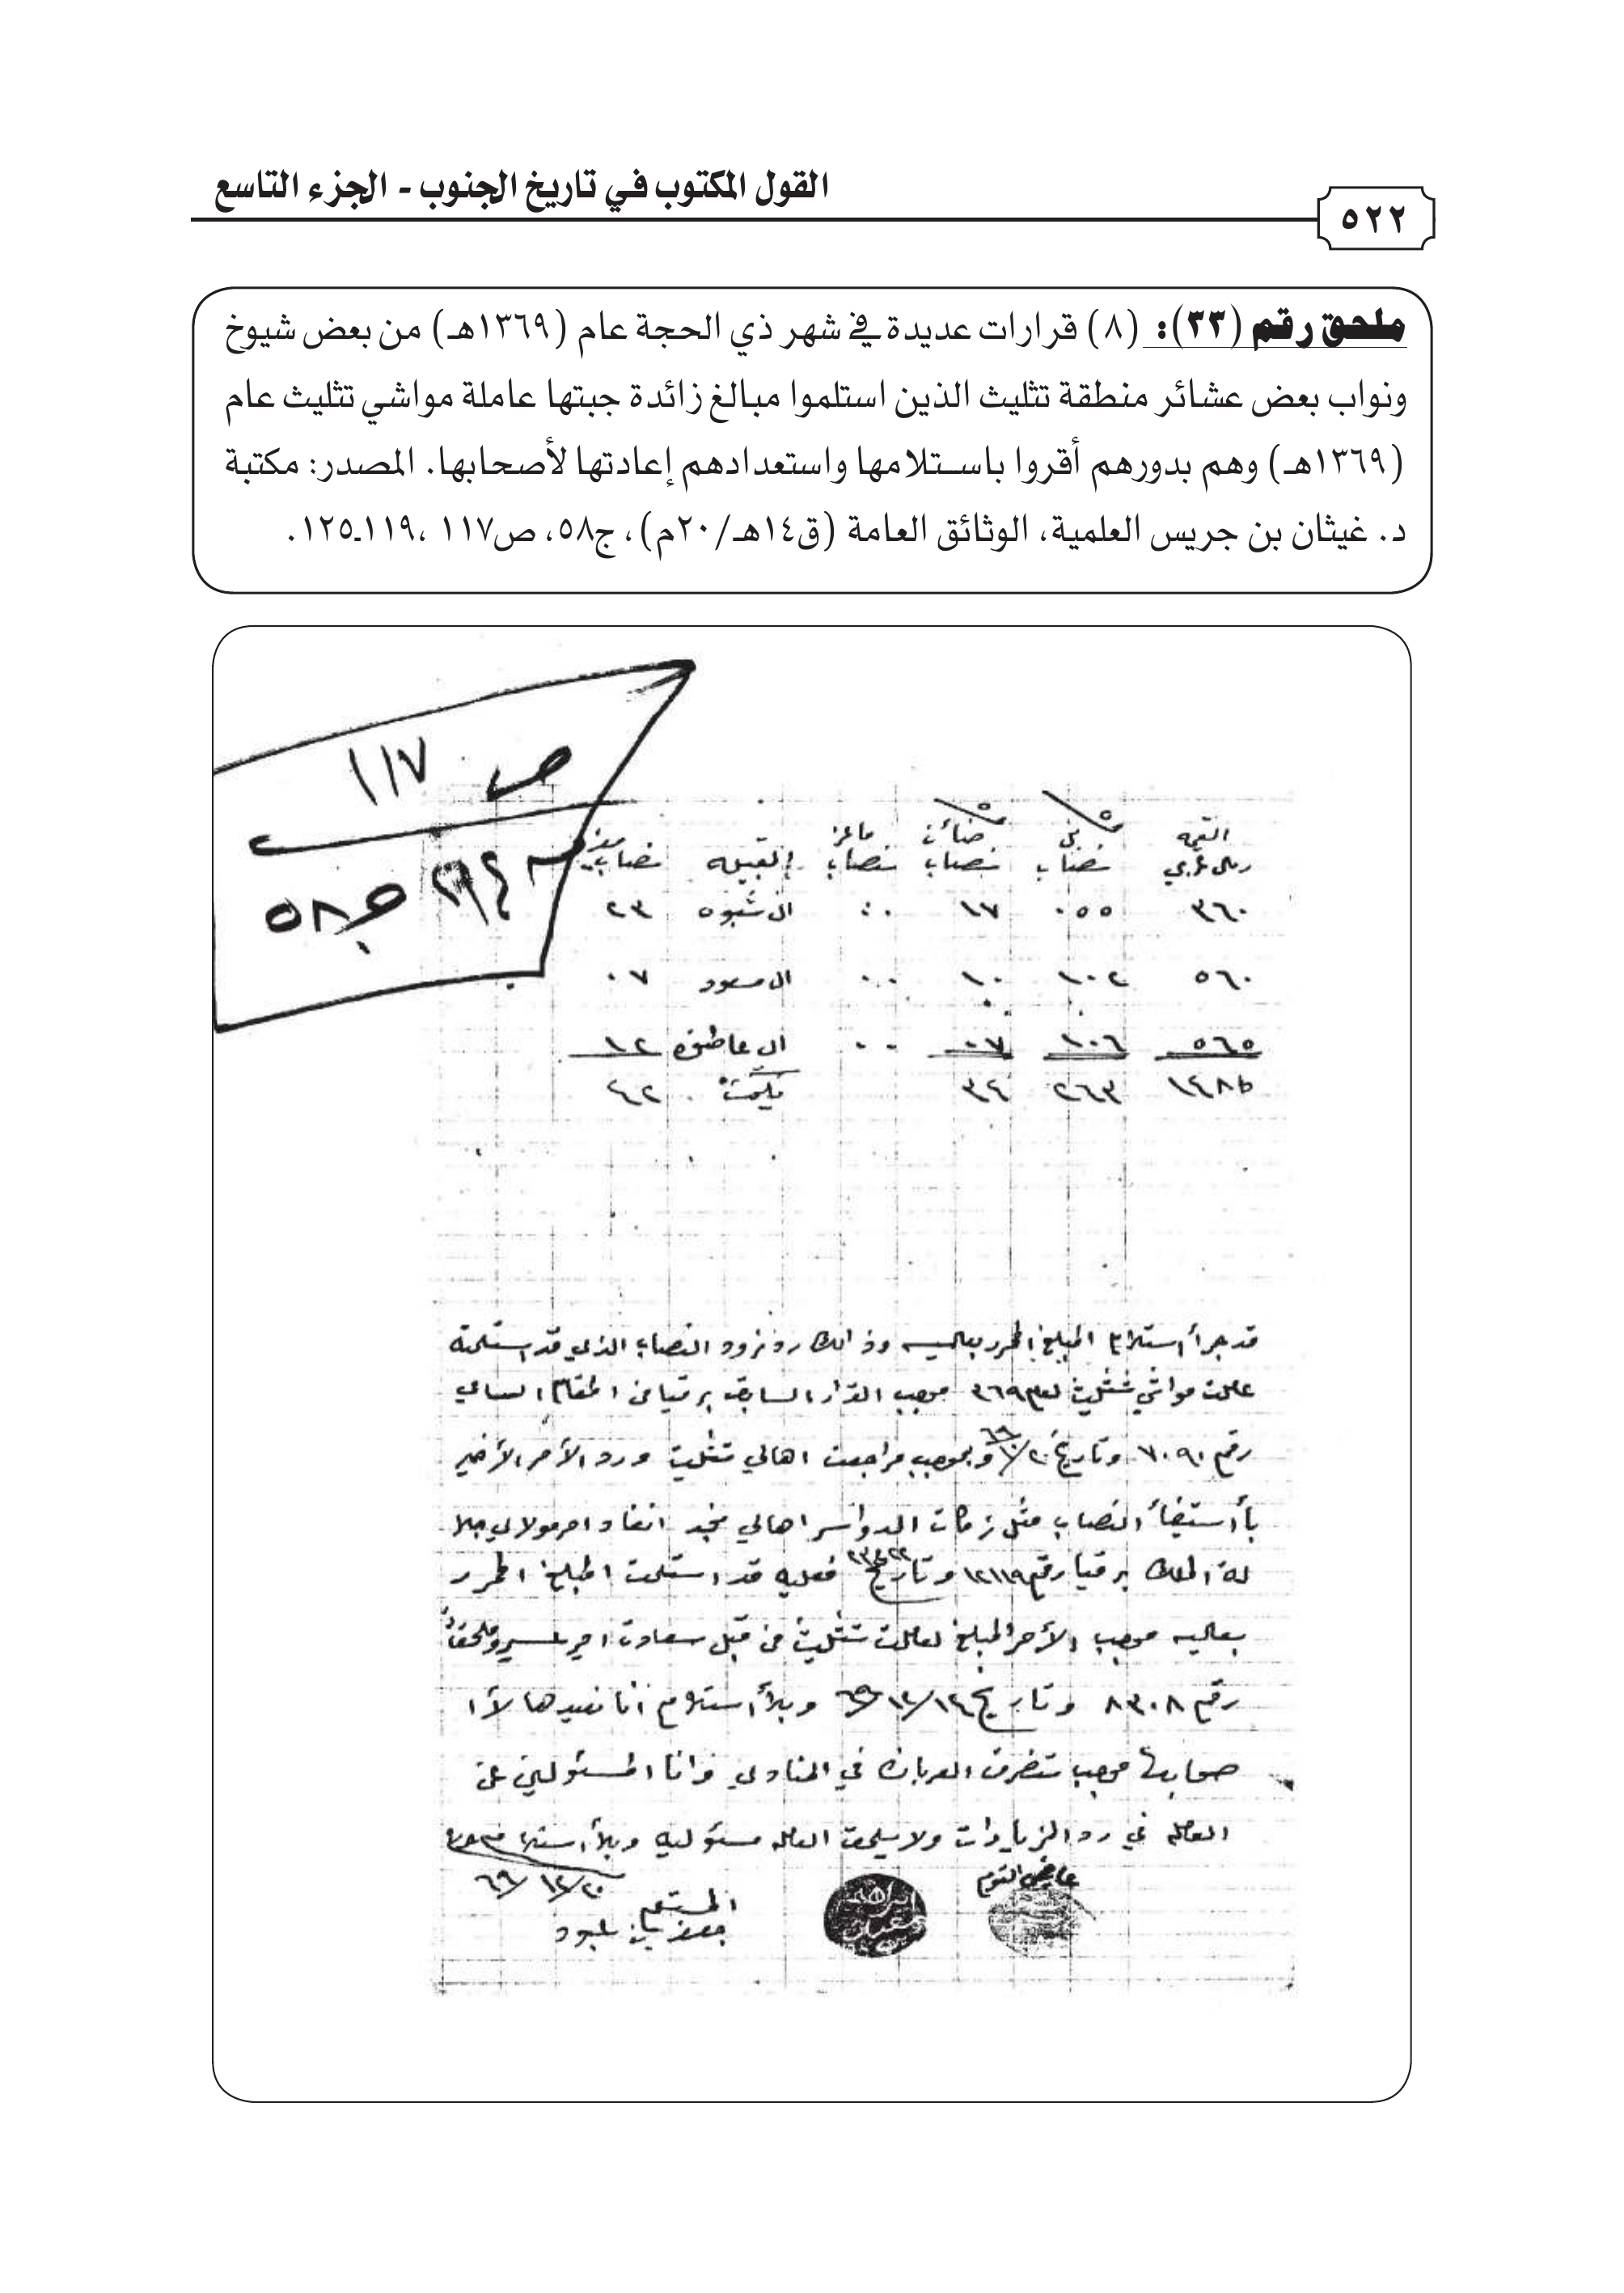 القول المكتوب في تاريخ الجنوب - الجزء التاسع
٥٢٢
ملحق رقم (٣٣): (٨) قرارات عديدة في شهر ذي الحجة عام (١٣٦٩هـ) من بعض شيوخ
ونواب بعض عشائر منطقة تثليث الذين استلموا مبالغ زائدة جبتها عاملة مواشي تثليث عام
(١٣٦٩هـ) وهم بدورهم أقروا باستلامها واستعدادهم إعادتها لأصحابها. المصدر: مكتبة
د. غيثان بن جريس العلمية، الوثائق العامة (ق١٤هـ/٢٠م)، ج٥٨، ص١١٧، ١١٩ـ١٢٥.
ص ١١٧
ج ٥٨
القيمه ضأن ماعز
ريال عربي نصاب نصاب نصاب القبيله نصاب
٣٦٠ ٠٥٥ ١٧ ٠٠ ال شبوه ٢٣
٥٦٠ ١٠٢ ١٠ ٠٠ ال مسعود ٠٧
٥٦٥ ١٠٦ ٠٧ ٠٠ ال عاطفه ١٢
١٤٨٥ ٢٦٣ ٣٤ ٤٢
قد جرأ استلام المبلغ المحرر بعاليه وذالك النصاب الذي قد استلمته
عاملت مواشي تثليث لعام ٣٦٩ موجب القرار السابق برقيا من المقام السامي
رقم ٧٠٩١ وتاريخ وبموجب مراجعت اهالي تثليث ورد الأمر الأخير
بأستيفأ النصاب مثل زكات الدواسر اهالي نجد انفاد امر مولاي جلا
لة الملك برقيا رقم ١٢١١٩ وتاريخ فعليه قد استلمت المبلغ المحرر
بعاليه موجب الأمر المبلغ لعاملت تثليث من قبل سعادت امير عسير وملحقاته
رقم ٨٣٠٨ وتاريخ ١٤/١٢/٦٩ وبدأ استلام انا نعيدها لأ
صحابها موجب تضرف العربان في المناوي وانا المسئولين عن
العامله في رد الزيادات ولا يلحق العامله مسئوليه
٢٠/١٢/٦٩
المستلم